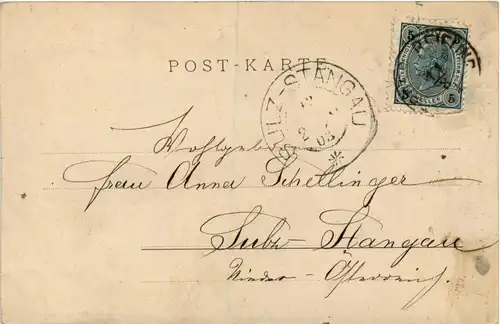 POST-KARTE
5 HELLER 5
SULZ-STANGAU
03
Wohlgeb.
Frau Anna Schellinger
Sulz-Stangau
Nieder-Österreich